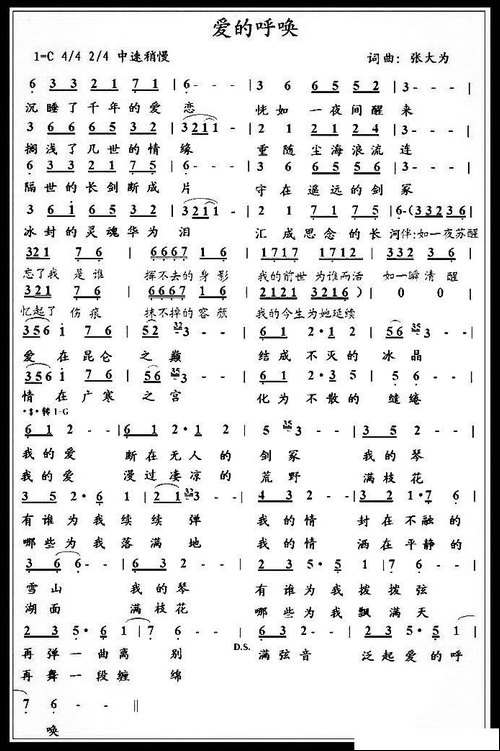 爱的呼唤
1=C 4/4 2/4 中速稍慢 词曲：张大为
6 3 3 2 2 1 7 1 | 6 - - - | 3 6 6 5 5 2 | 3 - - - |
沉睡了千年的爱恋 恍如一夜间醒来
3 6 6 6 5 3 2 | 3 2 1 1 - - | 2 1 2 1 2 4 | 3 - - - |
搁浅了几世的情缘 重随尘海浪流连
6 3 3 2 2 1 7 5 | 6 - - - | 3 6 6 5 5 2 | 3 - - - |
隔世的长剑断成片 守在遥远的剑冢
3 6 1 6 5 3 2 | 3 2 1 1 - - | 2 1 7 1 7 5 | 6 - (3 3 2 3 6 |
冰封的灵魂华为泪 汇成思念的长河 伴:如一夜苏醒
3 2 1 7 6 | 6 6 6 7 1 6 | 1 7 1 7 1 7 6 2 | 3 3 2 3 6 |
忘了我是谁 挥不去的身影 我的前世为谁而活 如一瞬清醒
3 2 1 7 6 | 6 6 6 7 1 6 | 2 1 2 1 3 2 1 6) | 0 0 |
忆起了伤痕 抹不掉的容颜 我的今生为她延续
3 5 6 1 7 6 | 5 2 3 2 3 - - | 6 1 1 2 · 1 2 | 5 6 3 5 3 - - |
爱在昆仑之巅 结成不灭的冰晶
3 5 6 1 7 6 | 1 2 5 3 5 - - | 6 1 1 2 · 3 3 | 5 6 6 - - |
情在广寒之宫 化为不散的缱绻
·𝄋· 转1=G
6 1 2 - - | 6 1 2 6 · 2 1 | 5 5 3 5 3 - - | 3 5 2 - - |
我的爱 断在无人的剑冢 我的琴
我的爱 漫过凄凉的荒野 满枝花
3 5 2 · 6 1 | 2 1 3 2 3 - - | 4 3 2 - - | 3 2 1 · 7 6 |
有谁为我续续弹 我的情封在不融的
哪些为我落满地 我的情洒在平静的
1 = 6 6 - - | 3 5 2 - - | 2 3 5 · 5 1 | 7 6 - - |
雪山 我的琴 有谁为我拨拨弦
湖面 满枝花 哪些为我飘满天
2 3 5 · 6 1 | 1 7 6 - - | 6 3 2 - - | 2 3 5 · 5 1 |
再弹一曲离别 D.S. 满弦音 泛起爱的呼
再舞一段缠绵
7 6 - - ‖
唤